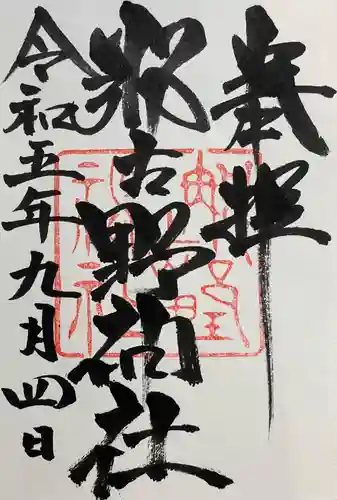 奉拝
那古野神社
令和五年九月四日